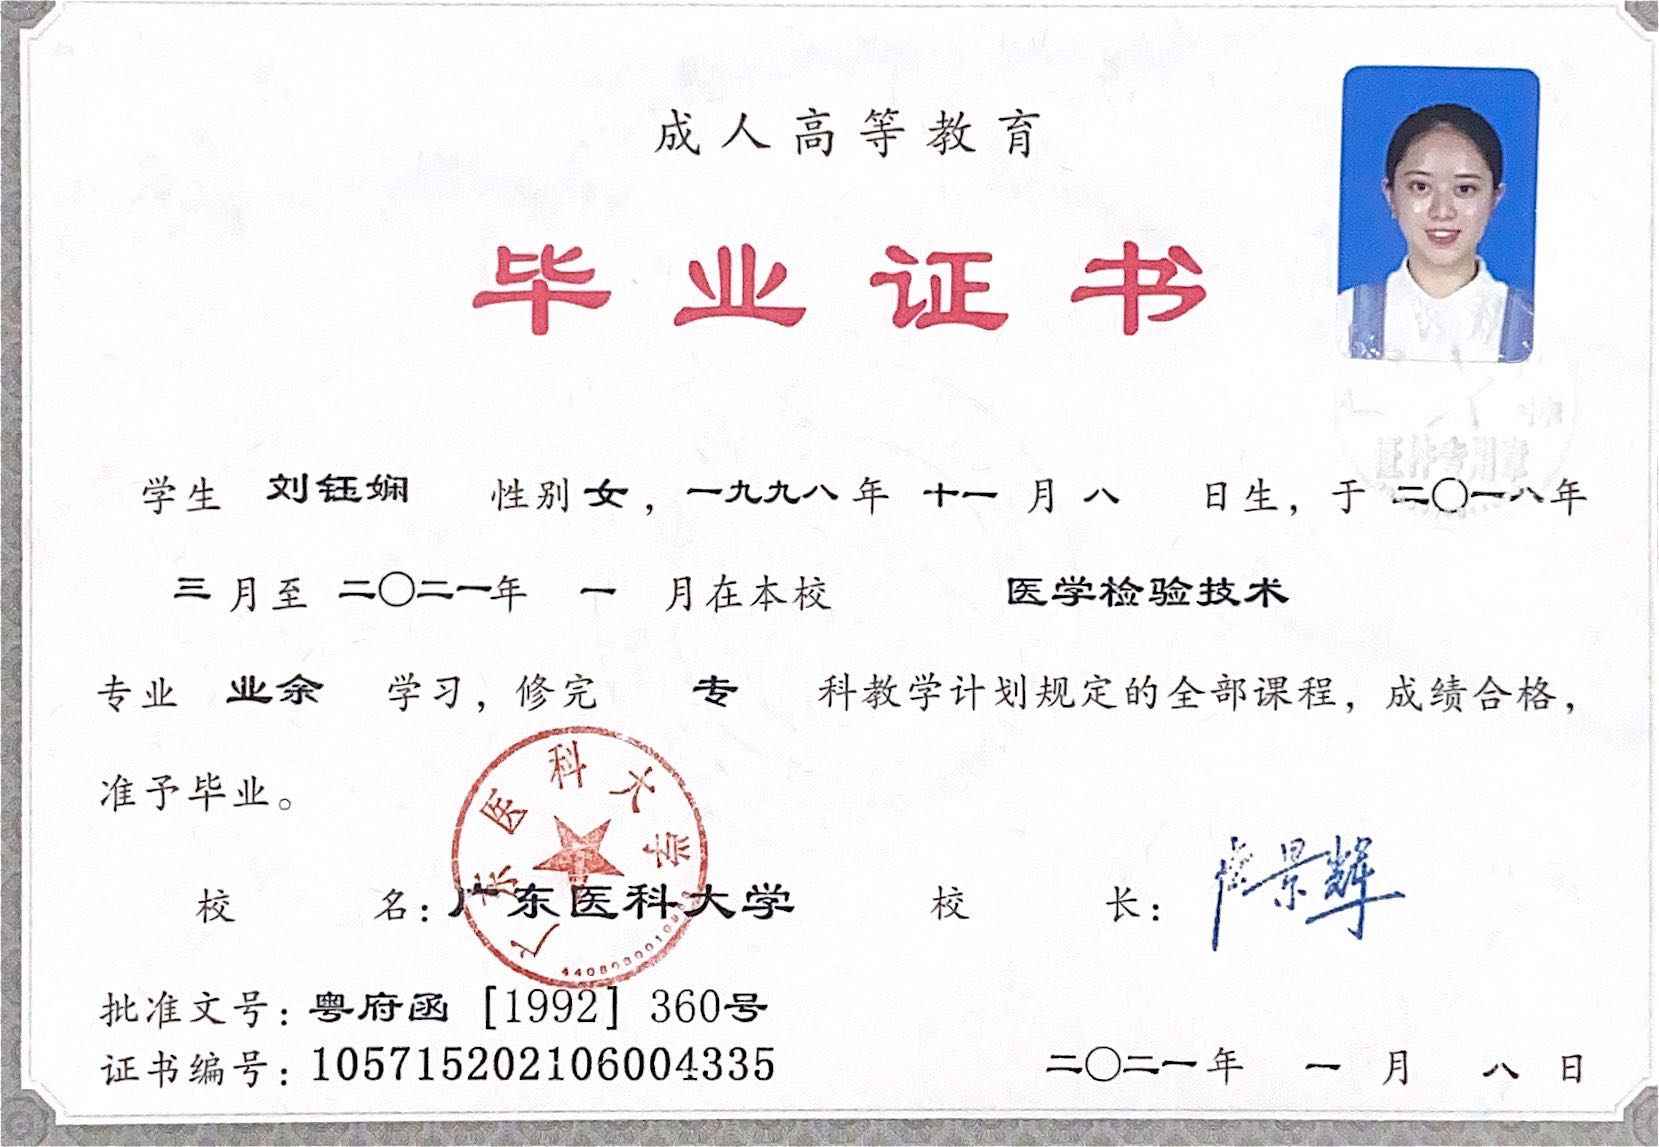 成人高等教育
毕业证书
学生 刘钰娴 性别 女，一九九八年 十一 月 八 日生，于 二〇一八年
三月至 二〇二一年 一 月在本校 医学检验技术
专业 业余 学习，修完 专 科教学计划规定的全部课程，成绩合格，
准予毕业。
校 名：广东医科大学 校 长：
批准文号：粤府函［1992］360号
证书编号：105715202106004335 二〇二一年 一 月 八 日
广东医科大学
证件专用章